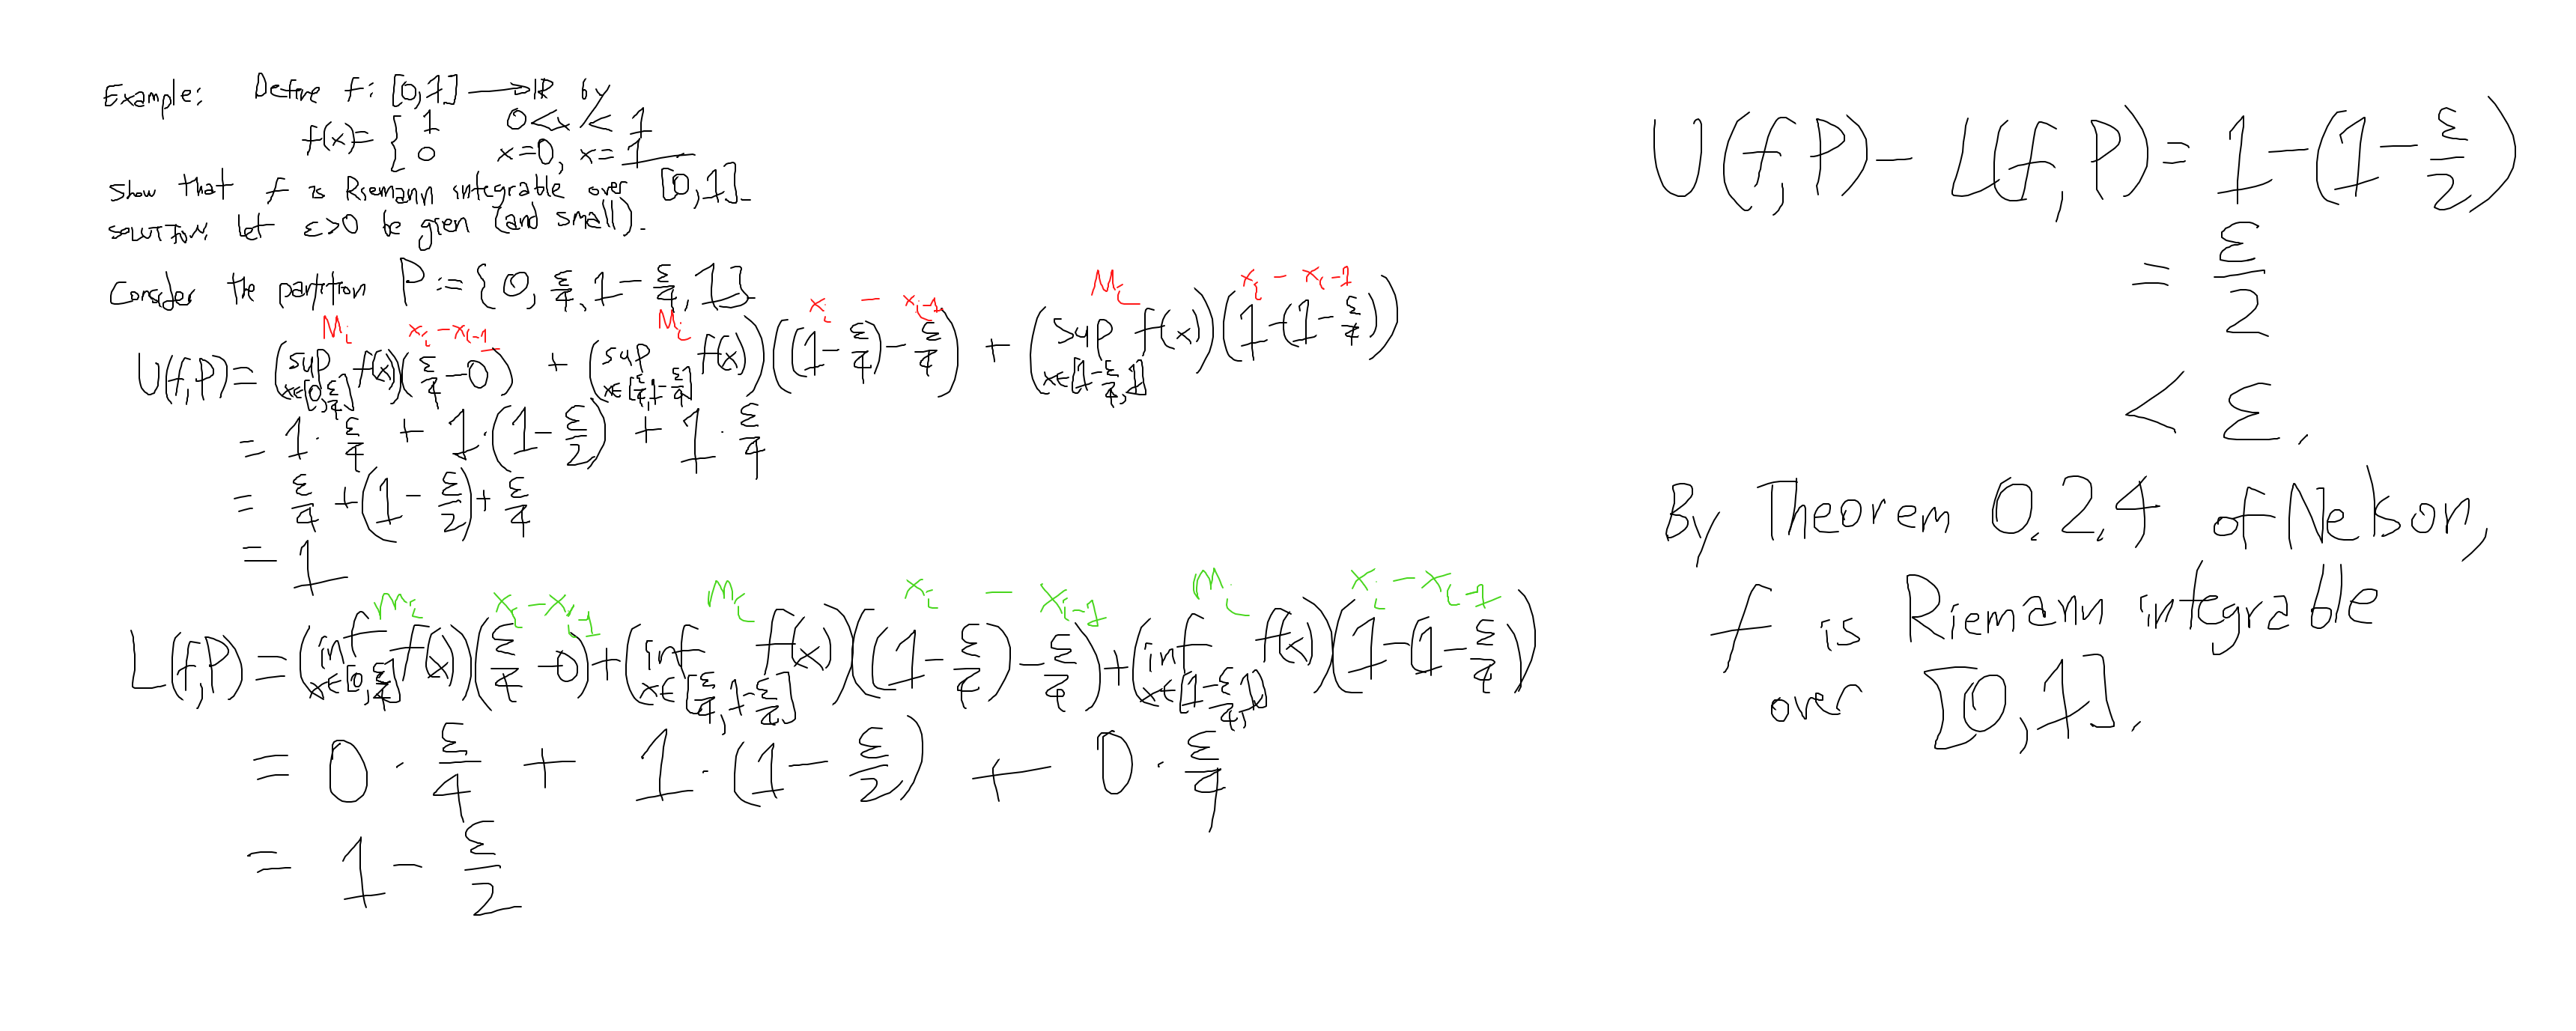 Example: Define f: [0,1] → ℝ by
f(x) = { 1   0<x<1
0   x=0, x=1
Show that f is Riemann integrable over [0,1].
SOLUTION: Let ε>0 be gien (and small).
Consider the partition P := {0, ε/4, 1 − ε/4, 1}
M_i x_i − x_{i-1} M_i x_i − x_{i-1} M_i x_i − x_{i-1}
U(f,P) = (sup_{x∈[0,ε/4]} f(x))(ε/4 − 0) + (sup_{x∈[ε/4,1−ε/4]} f(x))((1 − ε/4) − ε/4) + (sup_{x∈[1−ε/4,1]} f(x))(1 − (1 − ε/4))
= 1 · ε/4 + 1·(1 − ε/2) + 1 · ε/4
= ε/4 + (1 − ε/2) + ε/4
= 1
m_i x_i − x_{i-1} m_i x_i − x_{i-1} m_i x_i − x_{i-1}
L(f,P) = (inf_{x∈[0,ε/4]} f(x))(ε/4 − 0) + (inf_{x∈[ε/4,1−ε/4]} f(x))((1 − ε/4) − ε/4) + (inf_{x∈[1−ε/4,1]} f(x))(1 − (1 − ε/4))
= 0 · ε/4 + 1·(1 − ε/2) + 0 · ε/4
= 1 − ε/2
U(f,P) − L(f,P) = 1 − (1 − ε/2)
= ε/2
< ε.
By Theorem 0.2.4 of Nelson,
f is Riemann integrable
over [0,1].